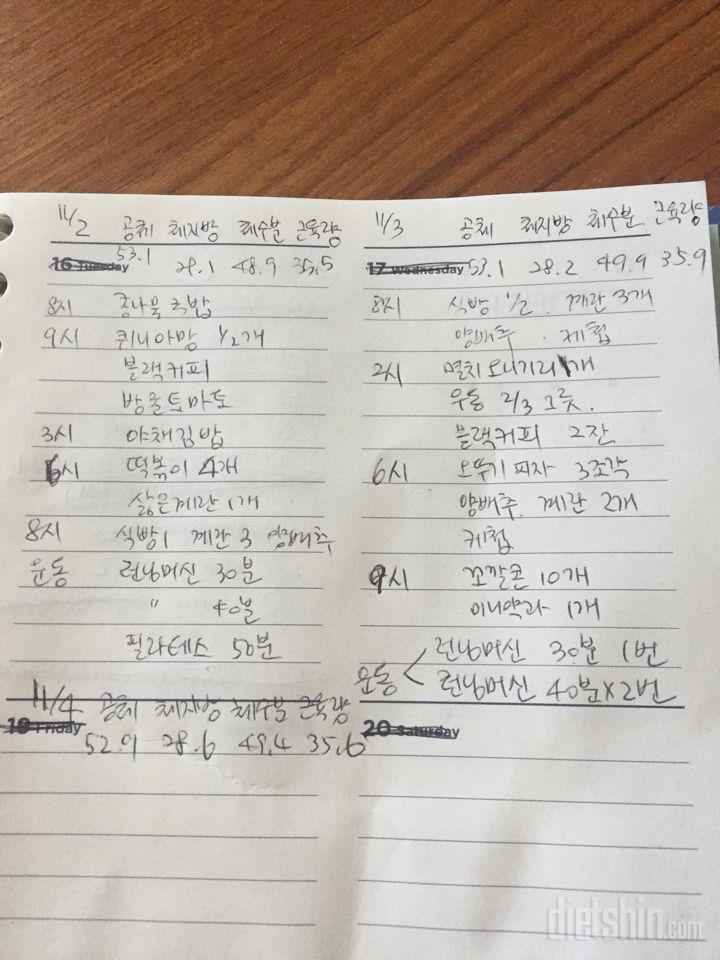 11/2 공체 체지방 체수분 근육량
53.1 28.1 48.9 35.5
16 Tuesday
8시 콩나물국밥
9시 퀴니아망 1/2개
블랙커피
방울토마토
3시 야채김밥
6시 떡볶이 4개
삶은계란 1개
8시 식빵1 계란 3 양배추
운동 런닝머신 30분
" 40분
필라테스 50분
11/3 공체 체지방 체수분 근육량
17 Wednesday 53.1 28.2 49.9 35.9
8시 식빵 1/2. 계란 3개
양배추. 케첩
2시 멸치오니기리 1개
우동 2/3 그릇.
블랙커피 2잔
6시 오뚜기 피자 3조각
양배추. 계란 2개
케첩
9시 꼬깔콘 10개
미니약과 1개
운동 < 런닝머신 30분 1번
런닝머신 40분×2번
11/4 공체 체지방 체수분 근육량
19 Friday
52.9 28.6 49.4 35.6
20 Saturday
dietshin.com